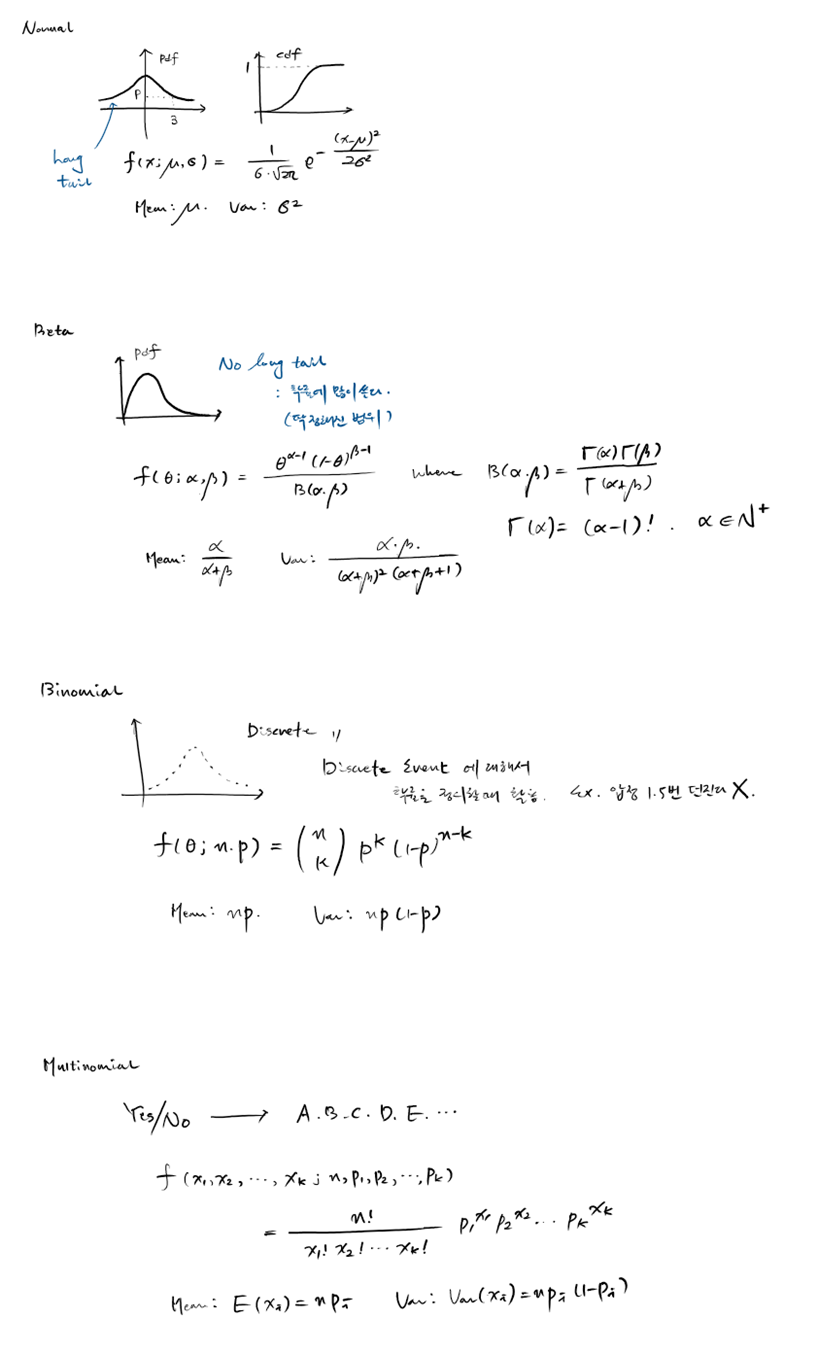 Normal
pdf
cdf
1
P
3
long
tail
f(x; μ, σ) = 1/(σ·√2π) e^-(x-μ)²/2σ²
Mean: μ. Var: σ²
Beta
pdf
No long tail
: 확률에 많이쓴다.
(딱 정해진 범위)
f(θ; α, β) = θ^α-1 (1-θ)^β-1 / B(α.β) where B(α.β) = Γ(α)Γ(β) / Γ(α+β)
Γ(α) = (α-1)!. α ∈ N⁺
Mean: α/(α+β) Var: α·β. / (α+β)² (α+β+1)
Binomial
Discrete
Discrete Event 에 대해서
확률을 정의할때 활용. Ex. 압정 1.5번 던진다 X.
f(θ; n.p) = (n k) p^k (1-p)^n-k
Mean: np. Var: np(1-p)
Multinomial
Yes/No → A.B.C.D.E. ⋯
f(x₁, x₂, ⋯, xₖ; n, p₁, p₂, ⋯, pₖ)
= n! / x₁! x₂! ⋯ xₖ! p₁^x₁ p₂^x₂ ⋯ pₖ^xₖ
Mean: E(xᵢ) = npᵢ Var: Var(xᵢ) = npᵢ(1-pᵢ)